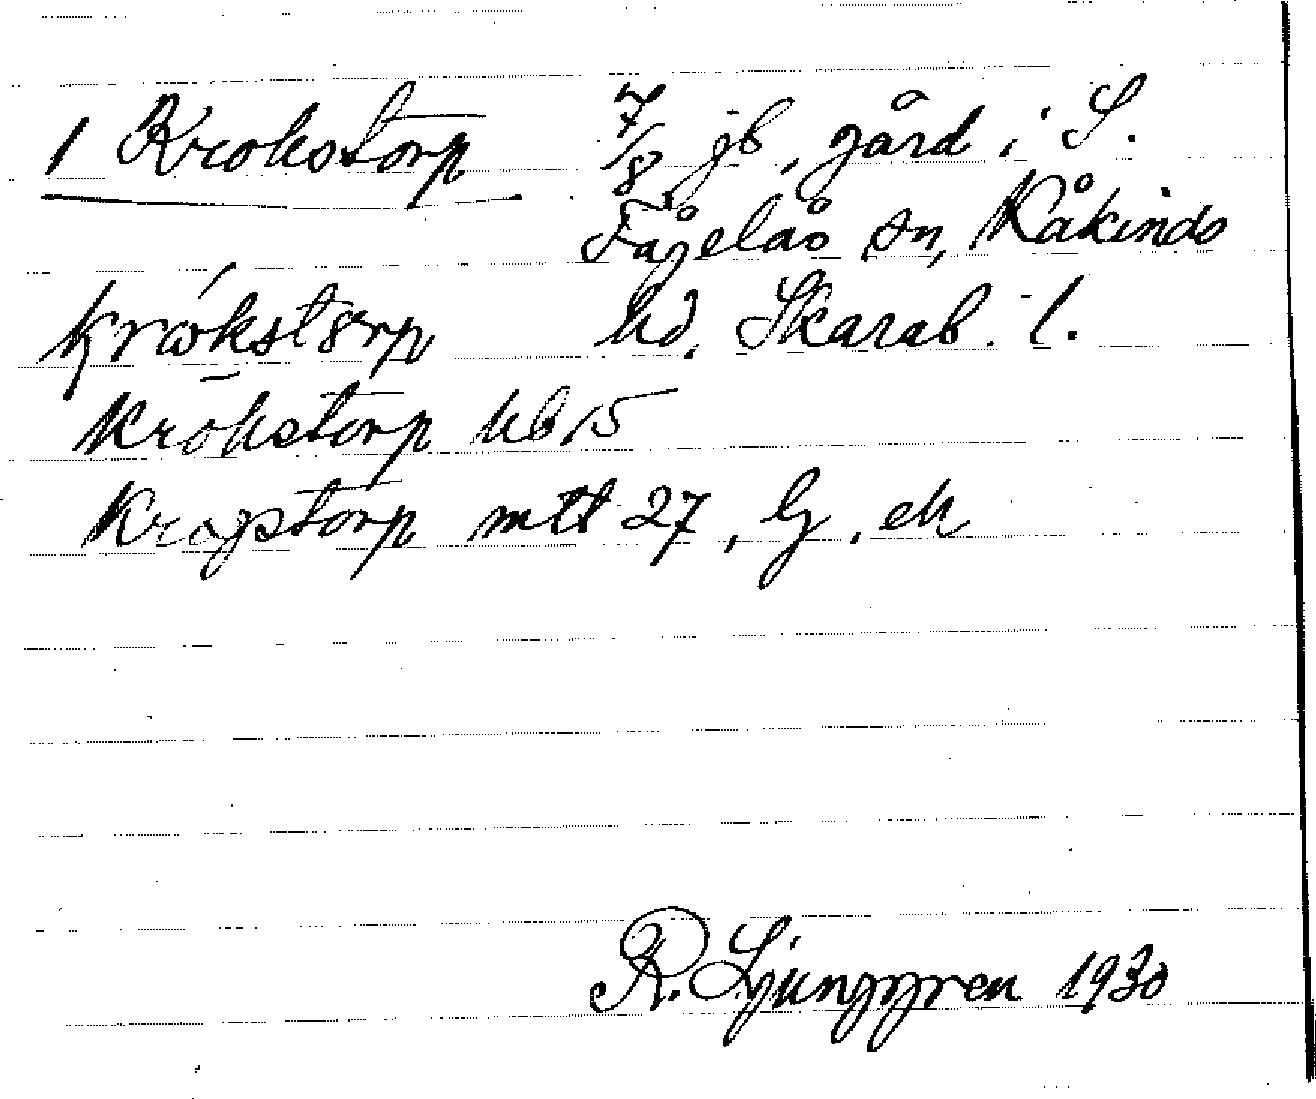 1 Krokstorp 7/8 jb, gård i S.
Fågelås sn, Kåkinds
hd. Skarab. l.
Krokstorp kb 15
Krogstorp mtl 27, G, ek
R. Ljunggren 1930